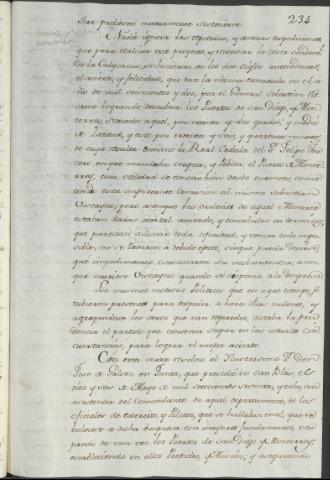 234
que pudiesen mutuamente sostenerse.
Nadie ignora las repetidas, y costosas expediciones,
que para realizar este proyecto, y reconocer la costa occidental
de la California, se hicieron en los dos Siglos antecedentes,
el acierto, y felicidad, que tuvo la ultima executada en el a
ño de mil seiscientos y dos, por el General Sebastian Viz
caino logrando descubrir los Puertos de San Diego, y Mon
terrey, situados aquel, por treinta y dos grados, y medio
de Latitud, y este, por treinta y seis, y quarenta minutos
de cuya resulta emano la Real Cedula del Sr. Felipe Ter
cero, en que mandaba ocupar, y poblar, el Puerto de Monte
rrey, cuya utilidad se conocio bien desde entonces, come
tiendo esta importante comision al mismo Sebastian
Vizcayno, pero aunque las ordenes de aquel Monarca
estaban dadas con tal acuerdo, y concebidas en terminos
que parecian allanar toda dificultad, y vencer todo impo
sible, no se llevaron a debido efecto, sin que pueda decirse
que impedimentos ocasionaron su inobservancia, aun
que muriese Vizcayno quando se disponia a la Empresa.
Los mismos motivos Politicos que en aquel tiempo, se
tubieron presentes para expedir dha orden, y
agregandose los otros que van referidos, dictaba la pru
dencia el partido que convenia seguir en las actuales cir
cunstancias, para lograr el mejor acierto.
Con esta mira resolvio el Ilustrisimo Sr. Don
Jose de Galvez en Junta, que presidió en San Blas, el
diez y seis de Mayo de mil setecientos sesenta, y ocho, con
asistencia del Comandante de aquel departamento, de los
oficiales de exercito, y Pilotos, que se hallaban en el, que se
bolviese a dicha empresa con mayores fundamentos, ocu
pando de una vez los Puertos de San Diego y Monterrey,
estableciendo en ellos Presidio, y Mision, y asegurando